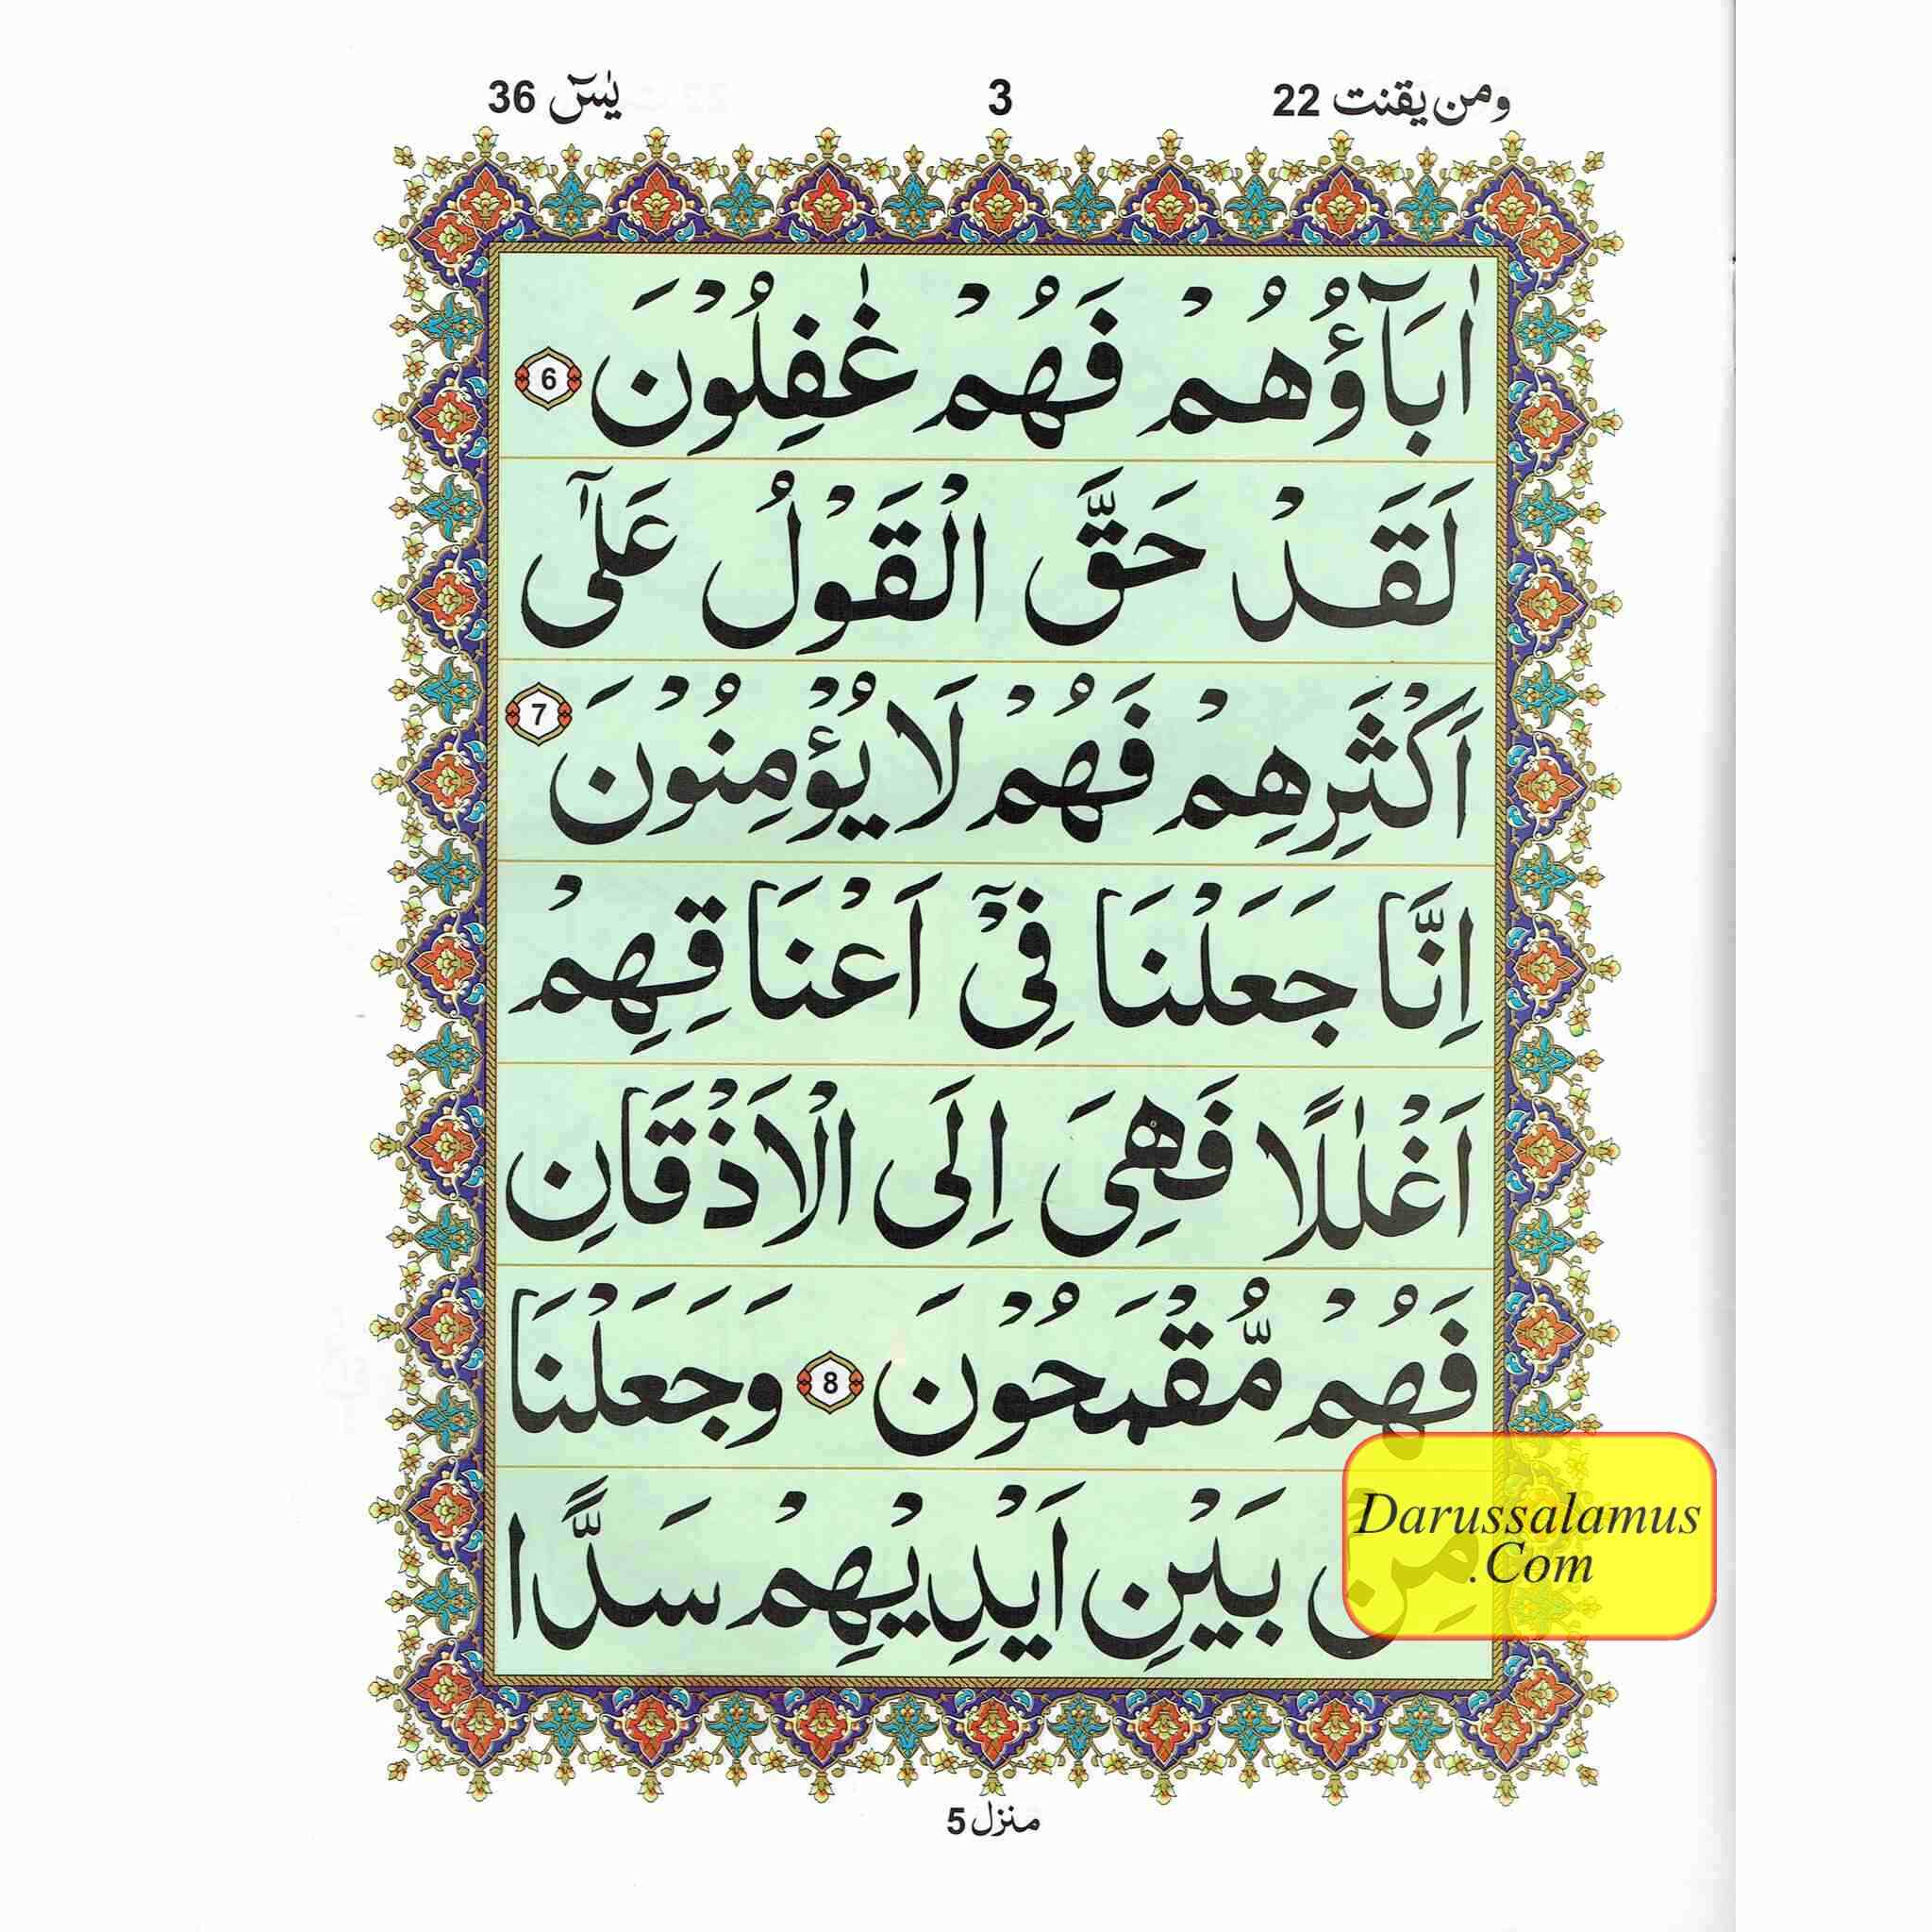 ومن يقنت 22
3
يٰسٓ 36
اٰبَآؤُهُمْ فَهُمْ غٰفِلُوْنَ 6
لَقَدْ حَقَّ الْقَوْلُ عَلٰٓى
اَكْثَرِهِمْ فَهُمْ لَا يُؤْمِنُوْنَ 7
اِنَّا جَعَلْنَا فِيْٓ اَعْنَاقِهِمْ
اَغْلٰلًا فَهِيَ اِلَى الْاَذْقَانِ
فَهُمْ مُّقْمَحُوْنَ 8 وَجَعَلْنَا
مِنْۢ بَيْنِ اَيْدِيْهِمْ سَدًّا
Darussalamus
.Com
منزل 5